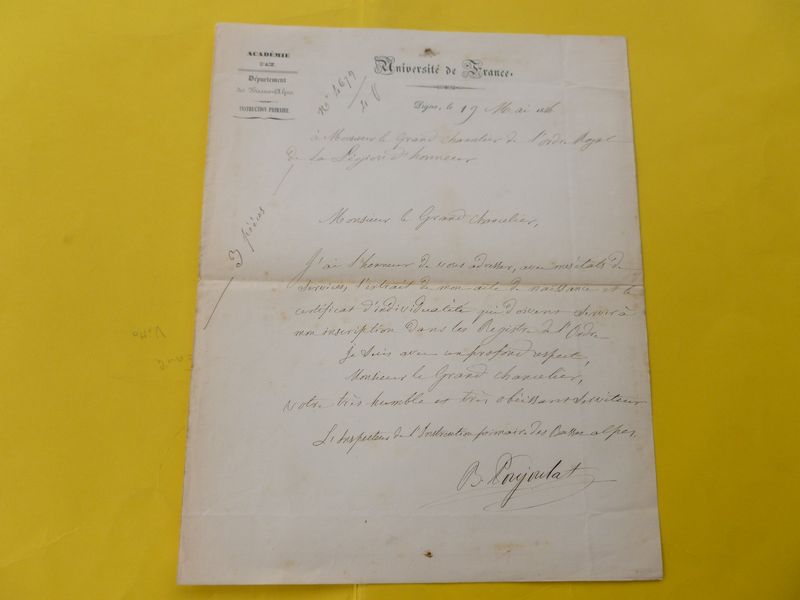 ACADÉMIE
D'AIX.
Département
des Basses-Alpes
INSTRUCTION PRIMAIRE
Université de France.
N° 4679
Digne, le 19 Mai 1846
à Monsieur le Grand chancelier de l'ordre Royal
de la Légion d'honneur
3 pièces
Monsieur le Grand chancelier,
J'ai l'honneur de vous adresser, avec mes états de
services, l'extrait de mon acte de naissance et le
certificat d'individualité qui doivent servir à
mon inscription dans les Registres de l'Ordre
Je suis avec un profond respect,
Monsieur le Grand chancelier,
Votre très humble et très obéissant serviteur
L'Inspecteur de l'Instruction primaire des Basses alpes,
B. Poujoulat